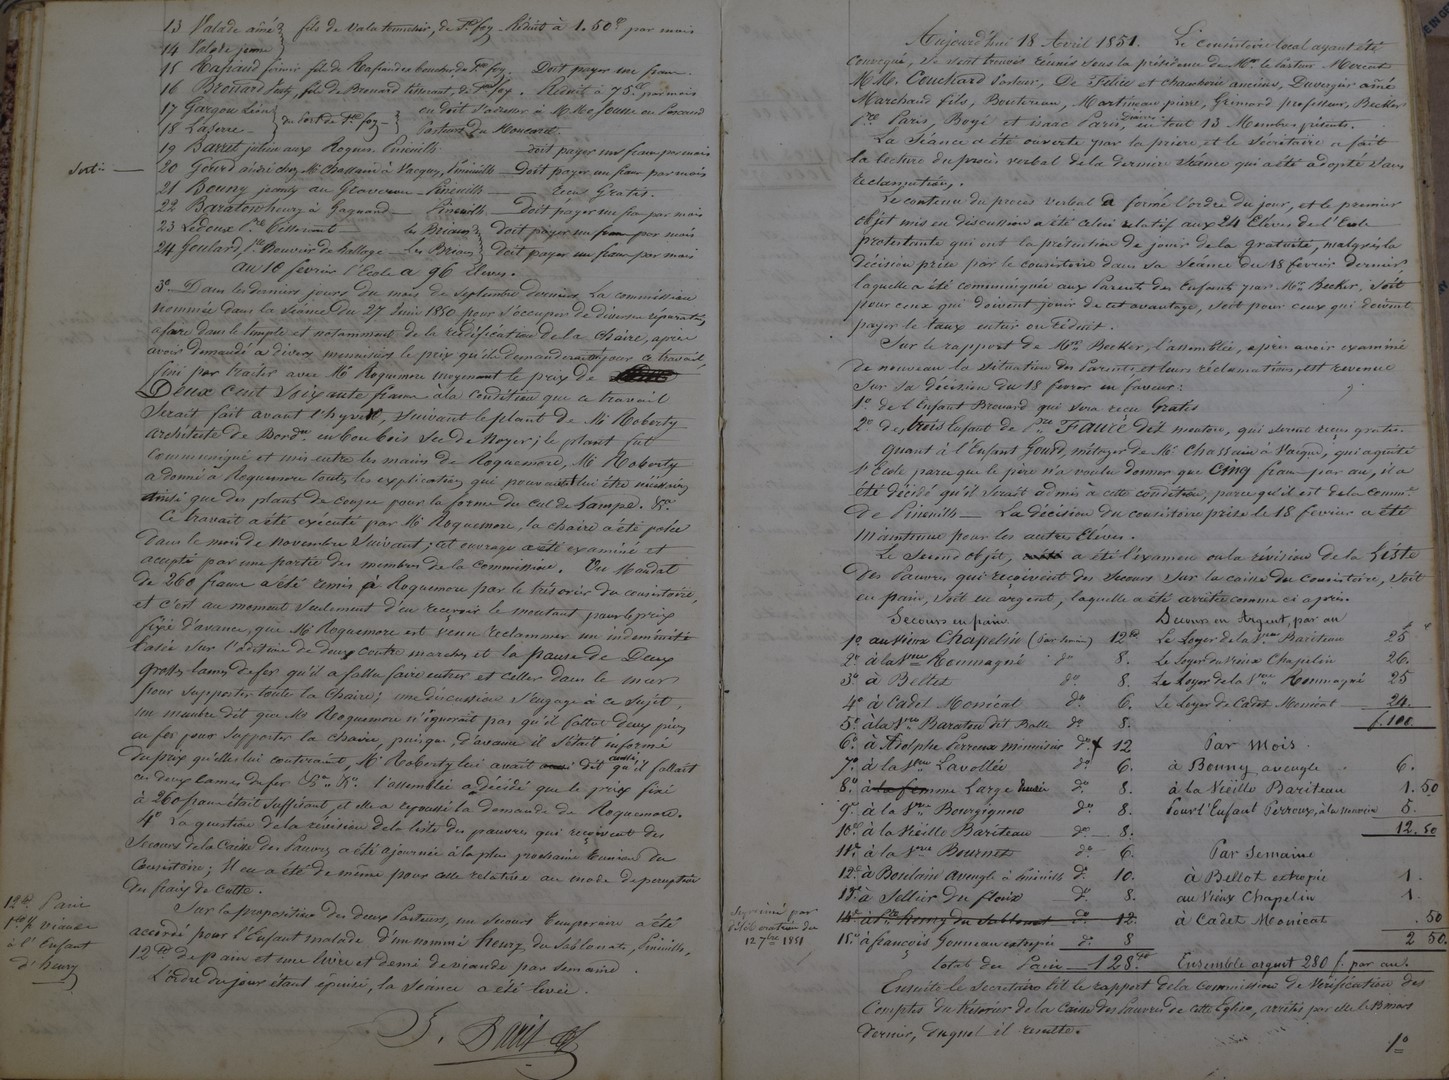 13 Valade aîné } fils de Valade tonnelier, de Ste foy. Réduit à 1.50c par mois
14 Valade jeune }
15 Rafiaud firmin fils de Rafiaud ex boucher de Ste foy. Doit payer un franc.
16 Brenard fils de Brenard de Ste foy. Réduit à 75c par mois
17 Gargou Léon } du Port de Ste foy — } on doit s'adresser à M.M.
18 Laserre — } Pasteurs du
19 Barret julien aux Roques Pineuilh doit payer un franc par mois
Sorti — 20 Gourd chez Mr Chassain à Pineuilh — Doit payer un franc par mois
21 Bouny jeandy au Pineuilh — — reçus Gratis.
22 Baraton henry à Gagnard — Pineuilh — Doit payer un fran par mois
23 Ledoux les Briaux } doit payer un fran par mois
24 Goulard, Bouvier de — Les Briaux } Doit payer un franc par mois
au 18 fevrier l'Ecole a 96 Elèves.
3o Dans les derniers jours du mois de Septembre dernier, La commission
nommée dans la séance du 27 Juin 1850 pour s'occuper de diverses réparations
à faire dans le temple et notamment de la réédification de la chaire, après
avoir demandé a divers menuisiers le prix qu'ils demanderaient pour ce travail,
fini par traiter avec Mr Roquemore moyennant le prix de
Deux cent soixante francs à la condition que ce travail
serait fait avant l'hyver, suivant le plant de Mr Roberty
architecte de Bordx en bon bois sec de Noyer; le plant fut
communiqué et mis entre les mains de Roquemore, Mr Roberty
a donné à Roquemore toutes les explications qui pouvaient lui être nécessaires
ainsi que des plans de coupes pour la forme du cul de Lampe. &c.
Ce travail a été exécuté par Mr Roquemore, la chaire a été posée
dans le mois de novembre suivant; cet ouvrage a été examiné et
accepté par une partie des membres de la commission. Un Mandat
de 260 francs a été remis à Roquemore par le trésorier du consistoire,
et c'est au moment seulement d'en recevoir le montant pour le prix
fixé d'avance, que Mr Roquemore est venu reclammer un indemnité
basée sur l'adition de deux contre marches et la pause de Deux
grosses lames de fer qu'il a fallu faire entrer et celler dans le mur
pour supporter toute la Chaire; une discussion s'engage à ce sujet,
un membre dit que Mr Roquemore n'ignorait pas qu'il fallut deux pièces
en fer pour supporter la chaire, puisque d'avance il s'était informé
du prix qu'elles lui couteraient, Mr Roberty lui avait aussi dit qu'il fallait
ces deux lames de fer &c. &c. l'assemblée a décidé que le prix fixé
à 260 francs était suffisant, et elle a repoussé la demande de Roquemore.
4o La question de la révision de la liste des pauvres qui reçoivent des
secours de la Caisse des Pauvres a été ajournée à la plus prochaine Réunion du
Consistoire; Il en a été de même pour celle relative au mode de perception
des fraix de culte.
Sur la proposition des deux Pasteurs, un secours temporaire a été
accordé pour l'Enfant malade d'un nommé henry du Sablonat, Pineuilh,
12 de pain et une livre et demi de viande par semaine.
L'ordre du jour étant épuisé, la séance a été levée.
12 Pain
1 ½ viande
à l'Enfant
d'henry
Aujourd'hui 18 Avril 1851. Le consistoire local ayant été
convoqué, se sont trouvés réunis sous la présidence de Mr le Pasteur
M.M. Couchard Pasteur, De Félice et Chamborre anciens, Duvergier aîné
Marchand fils, Boutereau, Martineau pierre, Grimard professeur, Becker
Pre Paris, Boyé et isaac Paris, en tout 13 Membres présents.
La Séance a été ouverte par la prière et le Sécrétaire a fait
la lecture du procès verbal de la dernière séance qui a été adopté sans
reclamation.
Le contenu du procès verbal a formé l'ordre du jour, et le premier
objet mis en discussion a été celui relatif aux 24 Elèves de l'Ecole
protestante qui ont la prétention de jouir de la gratuité, malgré la
décision prise par le consistoire dans sa séance du 18 février dernier
laquelle a été communiquée aux Parents des Enfants par Mr Becker, soit
pour ceux qui doivent jouir de cet avantage, soit pour ceux qui doivent
payer le taux entier ou réduit.
Sur le rapport de Mr Becker, l'assemblée, après avoir examiné
de nouveau la situation des Parents et leurs réclamations, est revenue
sur sa décision du 18 fevrer en faveur:
1o de l'Enfant Brenard qui sera reçu Gratis
2o des trois Enfant de Pre Fauré dit qui seront reçus gratis.
Quant à l'Enfant Gourd, métayer de Mr Chassain à qui a quité
l'Ecole parce que le père n'a voulu donner que cinq francs par an, il a
été décidé qu'il serait admis à cette condition, parce qu'il est de la comme
de Pineuilh — La décision du consistoire prise le 18 février a été
maintenue pour les autres Elèves.
Le Second objet, a été l'examen ou la révision de la Liste
des Pauvres qui reçoivent des secours sur la caisse du consistoire, soit
en pain, soit en argent, laquelle a été arrêtée comme ci après.
Secours en pain Secours en Argent, par an
1o au vieux Chapelin (Par semaine) 12 Le Loyer de la Vve Bariteau 25
2o à la Vve Roumagné do 8. Le loyer du vieux Chapelin 26.
3o à Bellet do 8. Le Loyer de la Vve Roumagné 25
4o à Cadet Monicat do 6. Le Loyer de Cadet Monicat 24.
5o à la Vve Barateau dit Balle do 8. f. 100
6o à Adolphe Perreux menuisier do 12 Par Mois.
7o à la Vve Lavollée do 6. à Bouny aveugle 6.
8o à la femme Large do 8. à la Vieille Bariteau 1.50
9o à la Vve Bourgignon do 8. Pour l'Enfant Perroux, à la 5.
10o à la Vieille Bariteau — do 8. 12.50
11o à la Vve Bournet do 6. Par Semaine
12o à aveugle à Pineuilh do 10. à Bellot estropié 1.
13o à Sellier du do 8. au Vieux Chapelin 1.
Suprimé par délibération du 12 7bre 1851 14o à henry du Sablonat do 12. à Cadet Monicat .50
15o à françois Gonneau estropié do 8 2 50.
total du Pain — 128 Ensemble argent 280 f. par an.
Ensuite le Secrétaire lit le rapport de la commission de vérification des
Comptes du trésorier de la Caisse des Pauvres de cette Eglise, arrêtés par elle le 8 mars
dernier, duquel il résulte.
1o